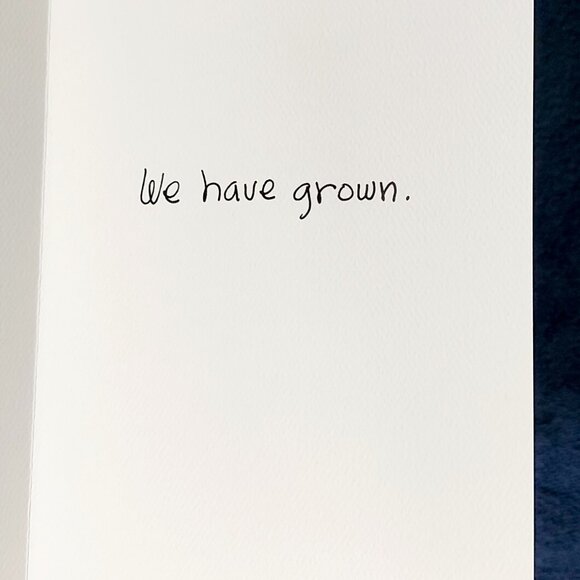 We have grown.